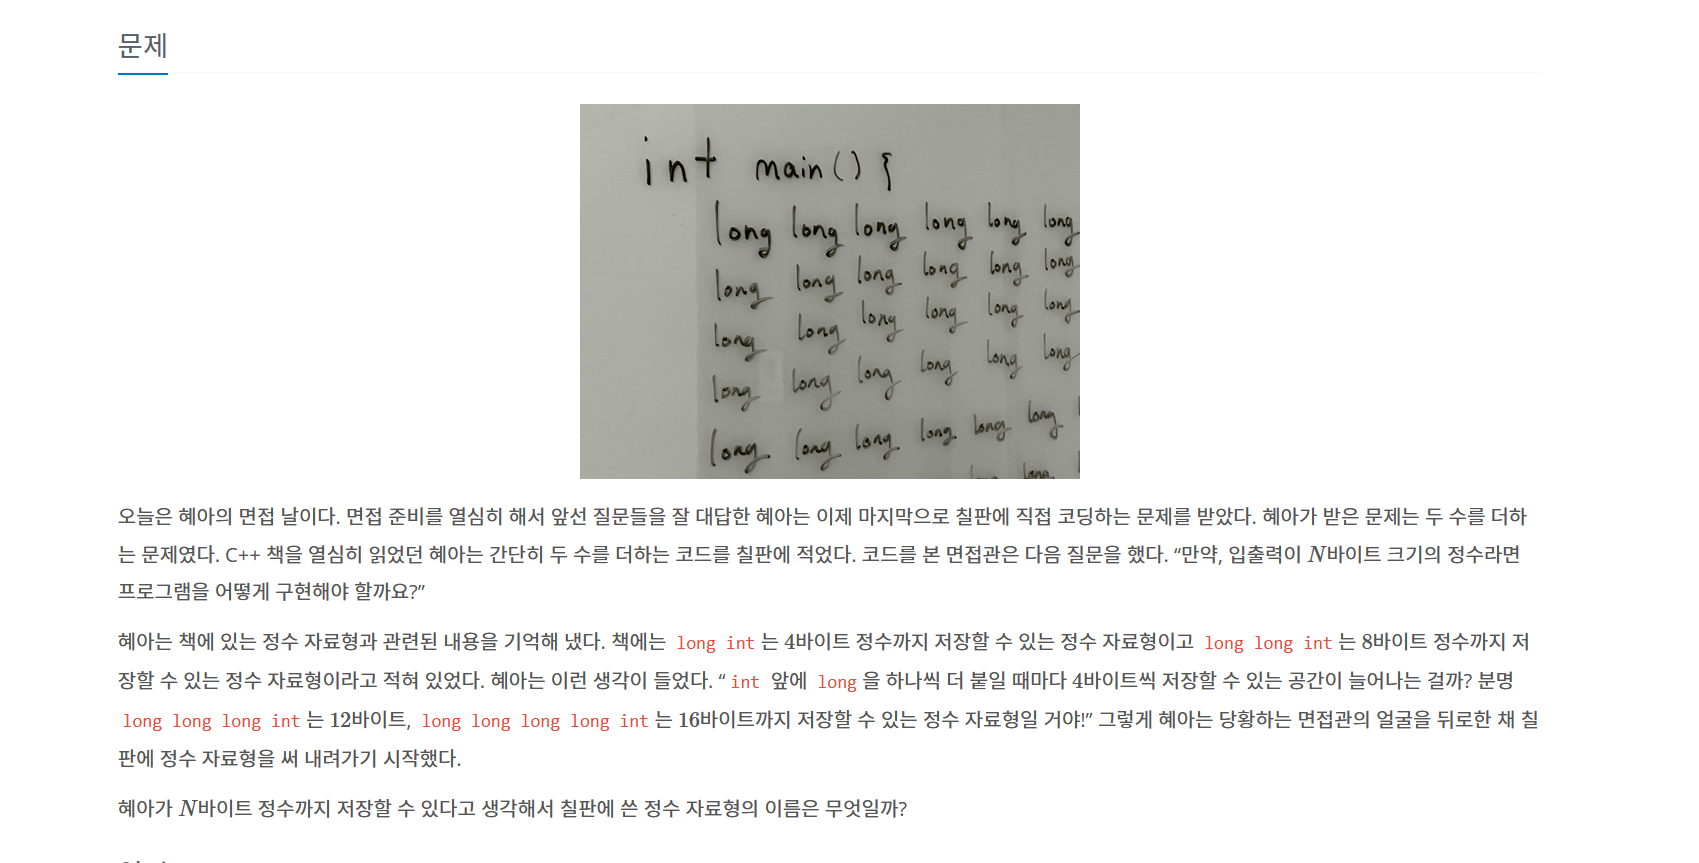 문제
int main() {
long long long long long long
long long long long long long
long long long long long long
long long long long long long
long long long long long long
long long
오늘은 혜아의 면접 날이다. 면접 준비를 열심히 해서 앞선 질문들을 잘 대답한 혜아는 이제 마지막으로 칠판에 직접 코딩하는 문제를 받았다. 혜아가 받은 문제는 두 수를 더하
는 문제였다. C++ 책을 열심히 읽었던 혜아는 간단히 두 수를 더하는 코드를 칠판에 적었다. 코드를 본 면접관은 다음 질문을 했다. “만약, 입출력이 N바이트 크기의 정수라면
프로그램을 어떻게 구현해야 할까요?”
혜아는 책에 있는 정수 자료형과 관련된 내용을 기억해 냈다. 책에는 long int 는 4바이트 정수까지 저장할 수 있는 정수 자료형이고 long long int 는 8바이트 정수까지 저
장할 수 있는 정수 자료형이라고 적혀 있었다. 혜아는 이런 생각이 들었다. “ int 앞에 long 을 하나씩 더 붙일 때마다 4바이트씩 저장할 수 있는 공간이 늘어나는 걸까? 분명
long long long int 는 12바이트, long long long long int 는 16바이트까지 저장할 수 있는 정수 자료형일 거야!” 그렇게 혜아는 당황하는 면접관의 얼굴을 뒤로한 채 칠
판에 정수 자료형을 써 내려가기 시작했다.
혜아가 N바이트 정수까지 저장할 수 있다고 생각해서 칠판에 쓴 정수 자료형의 이름은 무엇일까?